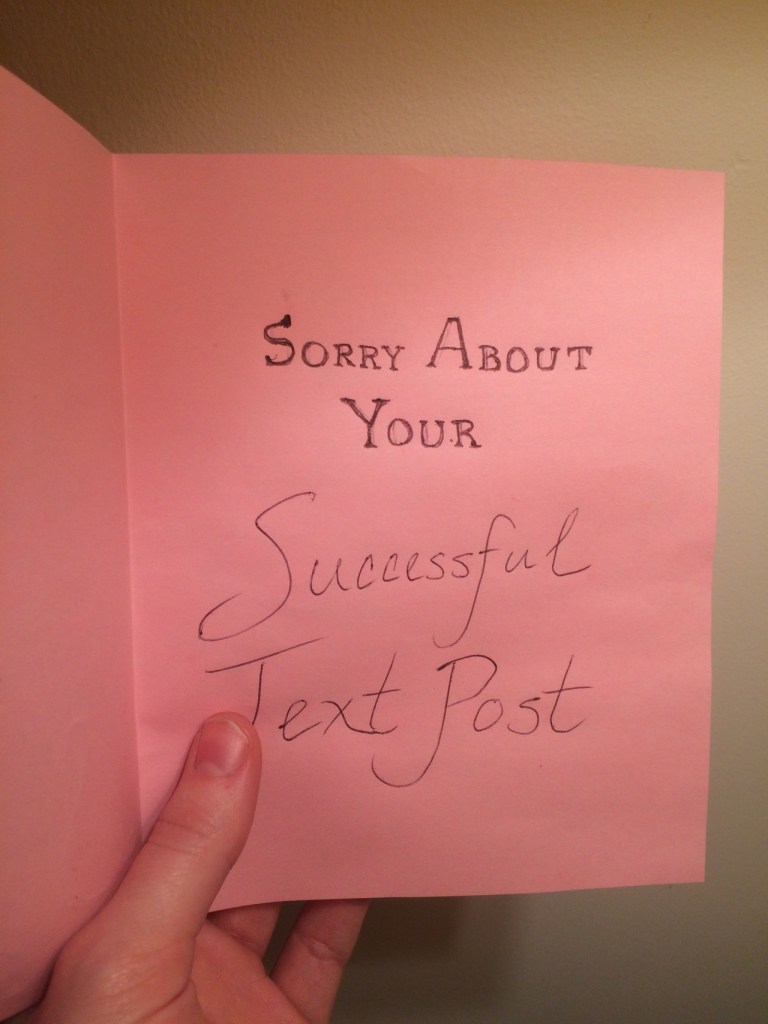 Sorry About
Your
Successful
Text Post